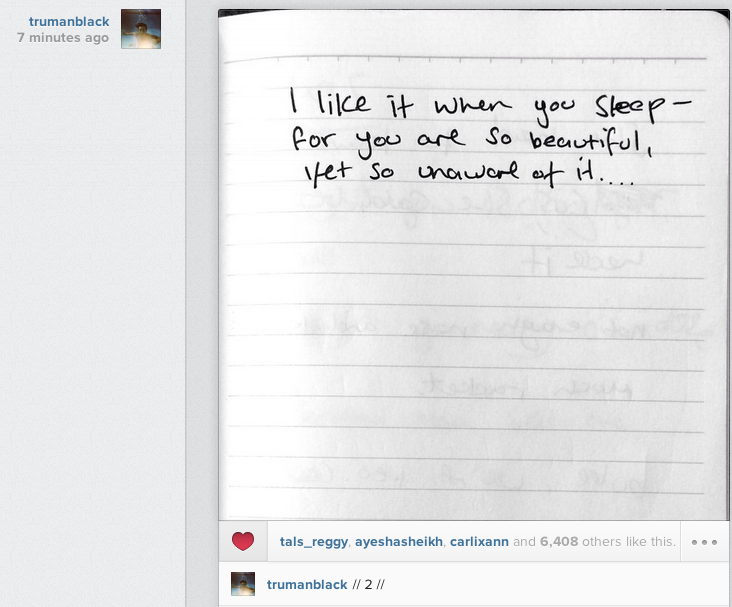 trumanblack
7 minutes ago
I like it when you sleep –
for you are so beautiful,
yet so unaware of it....
tals_reggy, ayeshasheikh, carlixann and 6,408 others like this.
trumanblack // 2 //